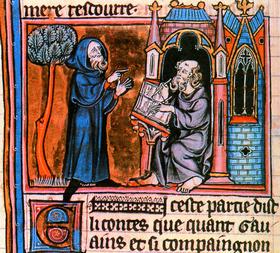 mere rescourre.
Ceste partie dist
li contes que quant Gau
ains et si compaingnon